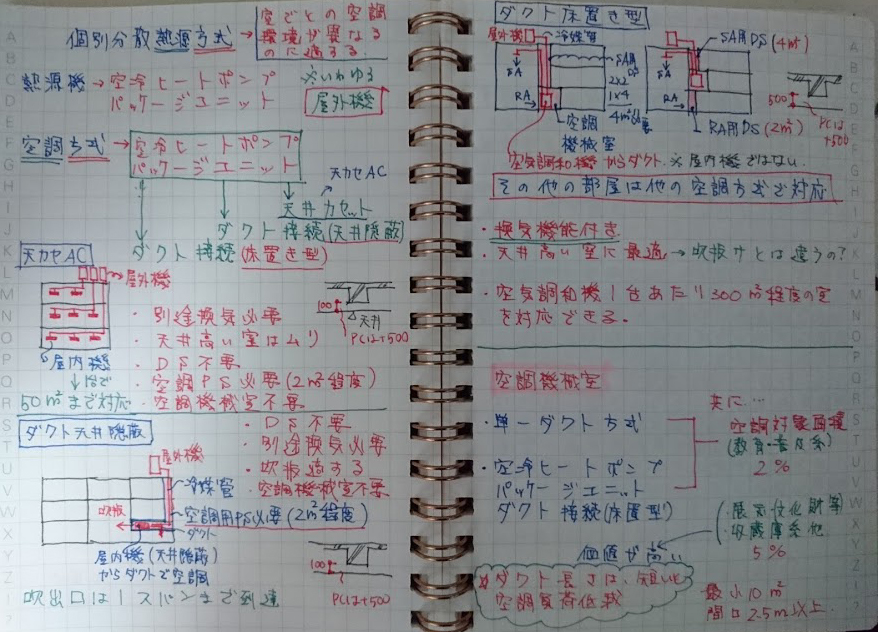 個別分散熱源方式→
室ごとの空調
環境が異なる
のに適する.
熱源機→空冷ヒートポンプ
パッケージユニット
※いわゆる
屋外機
空調方式→空冷ヒートポンプ
パッケージユニット
天カセAC
天井カセット
ダクト接続(天井隠蔽)
ダクト接続(床置き型)
天カセAC
屋外機
100
天井
PCは+500
・別途換気必要
・天井高い室はムリ
・DS不要
・空調PS必要(2m²程度)
・空調機械室不要
屋内機
↓1台で
50m²まで対応
ダクト天井隠蔽
・DS不要
・別途換気必要
・吹抜適する
・空調機械室不要
屋外機
冷媒管
空調用PS必要(2m²程度)
吹抜
ダクト
屋内機(天井隠蔽)
からダクトで空調
100
PCは+500
吹出口は1スパンまで到達
ダクト床置き型
屋外機
冷媒管
SA
RA
SA用
DS
2x2
1x4
4m²必要
空調
機械室
SA
RA
SA用DS(4m²)
RA用DS(2m²)
500
PCは
+500
空気調和機からダクト.※屋内機ではない.
その他の部屋は他の空調方式で対応
・換気機能付き
・天井高い室に最適→吹抜けとは違うの?
・空気調和機1台あたり300m²程度の室
を対応できる.
空調機械室
・単一ダクト方式
・空冷ヒートポンプ
パッケージユニット
ダクト接続(床置型)
共に…
空調対象面積
(教育・普及系)
2%
(・展示文化財等
・収蔵庫系他
5%
価値が高い
※ダクト長さは、短い比
空調負荷低減
最小10m²
間口2.5m以上.